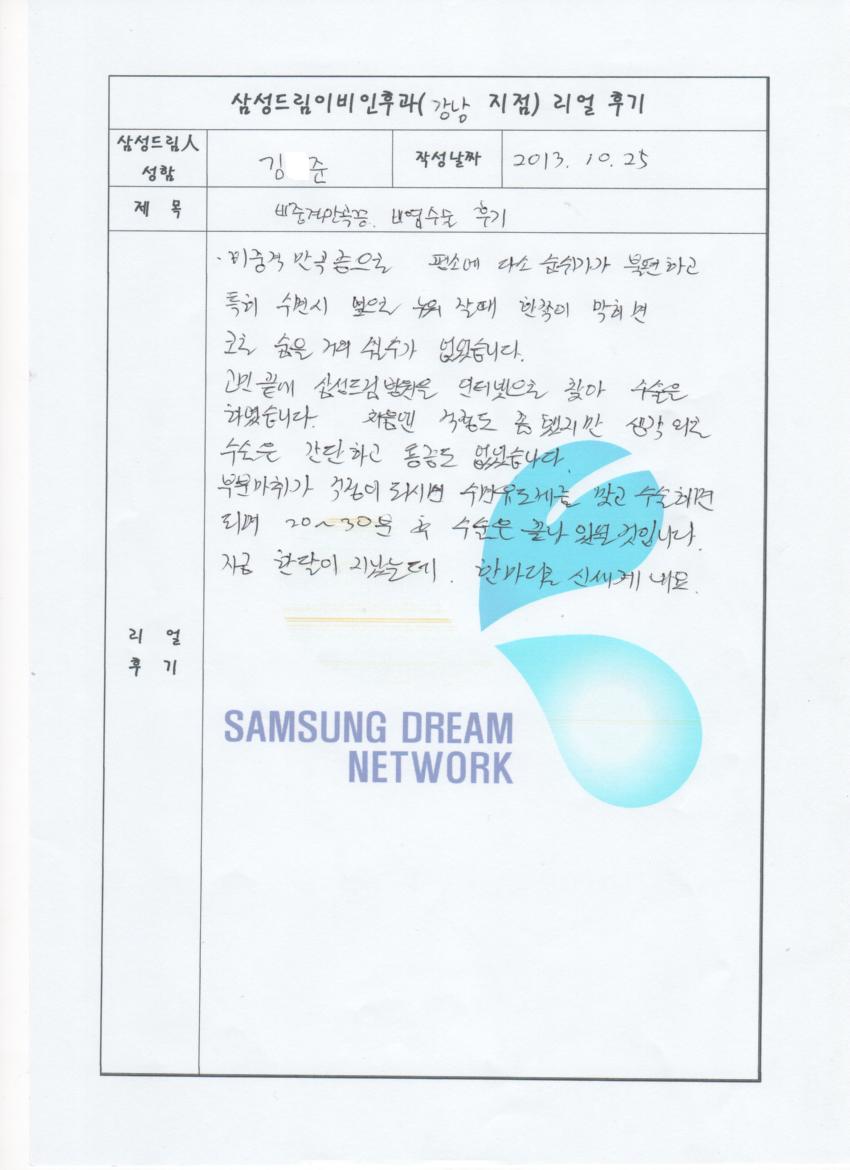 삼성드림이비인후과(강남 지점) 리얼 후기
삼성드림人 성함 김 준 작성날짜 2013. 10. 25
제 목 비중격만곡증. 비염수술 후기
리 얼 후 기
· 비중격 만곡증으로 평소에 다소 숨쉬기가 불편하고
특히 수면시 옆으로 누워 잘때 한쪽이 막히면
코로 숨을 거의 쉴수가 없었습니다.
고민끝에 삼성드림병원을 인터넷으로 찾아 수술은
하였습니다. 처음엔 걱정도 좀 됐지만 생각 외로
수술은 간단하고 통증도 없었습니다.
부분마취가 걱정이 되시면 수면유도제를 맞고 수술하면
되며 20~30분 후 수술은 끝나 있을 것입니다.
지금 한달이 지났는데. 한마디로 신세계 네요.
SAMSUNG DREAM
NETWORK